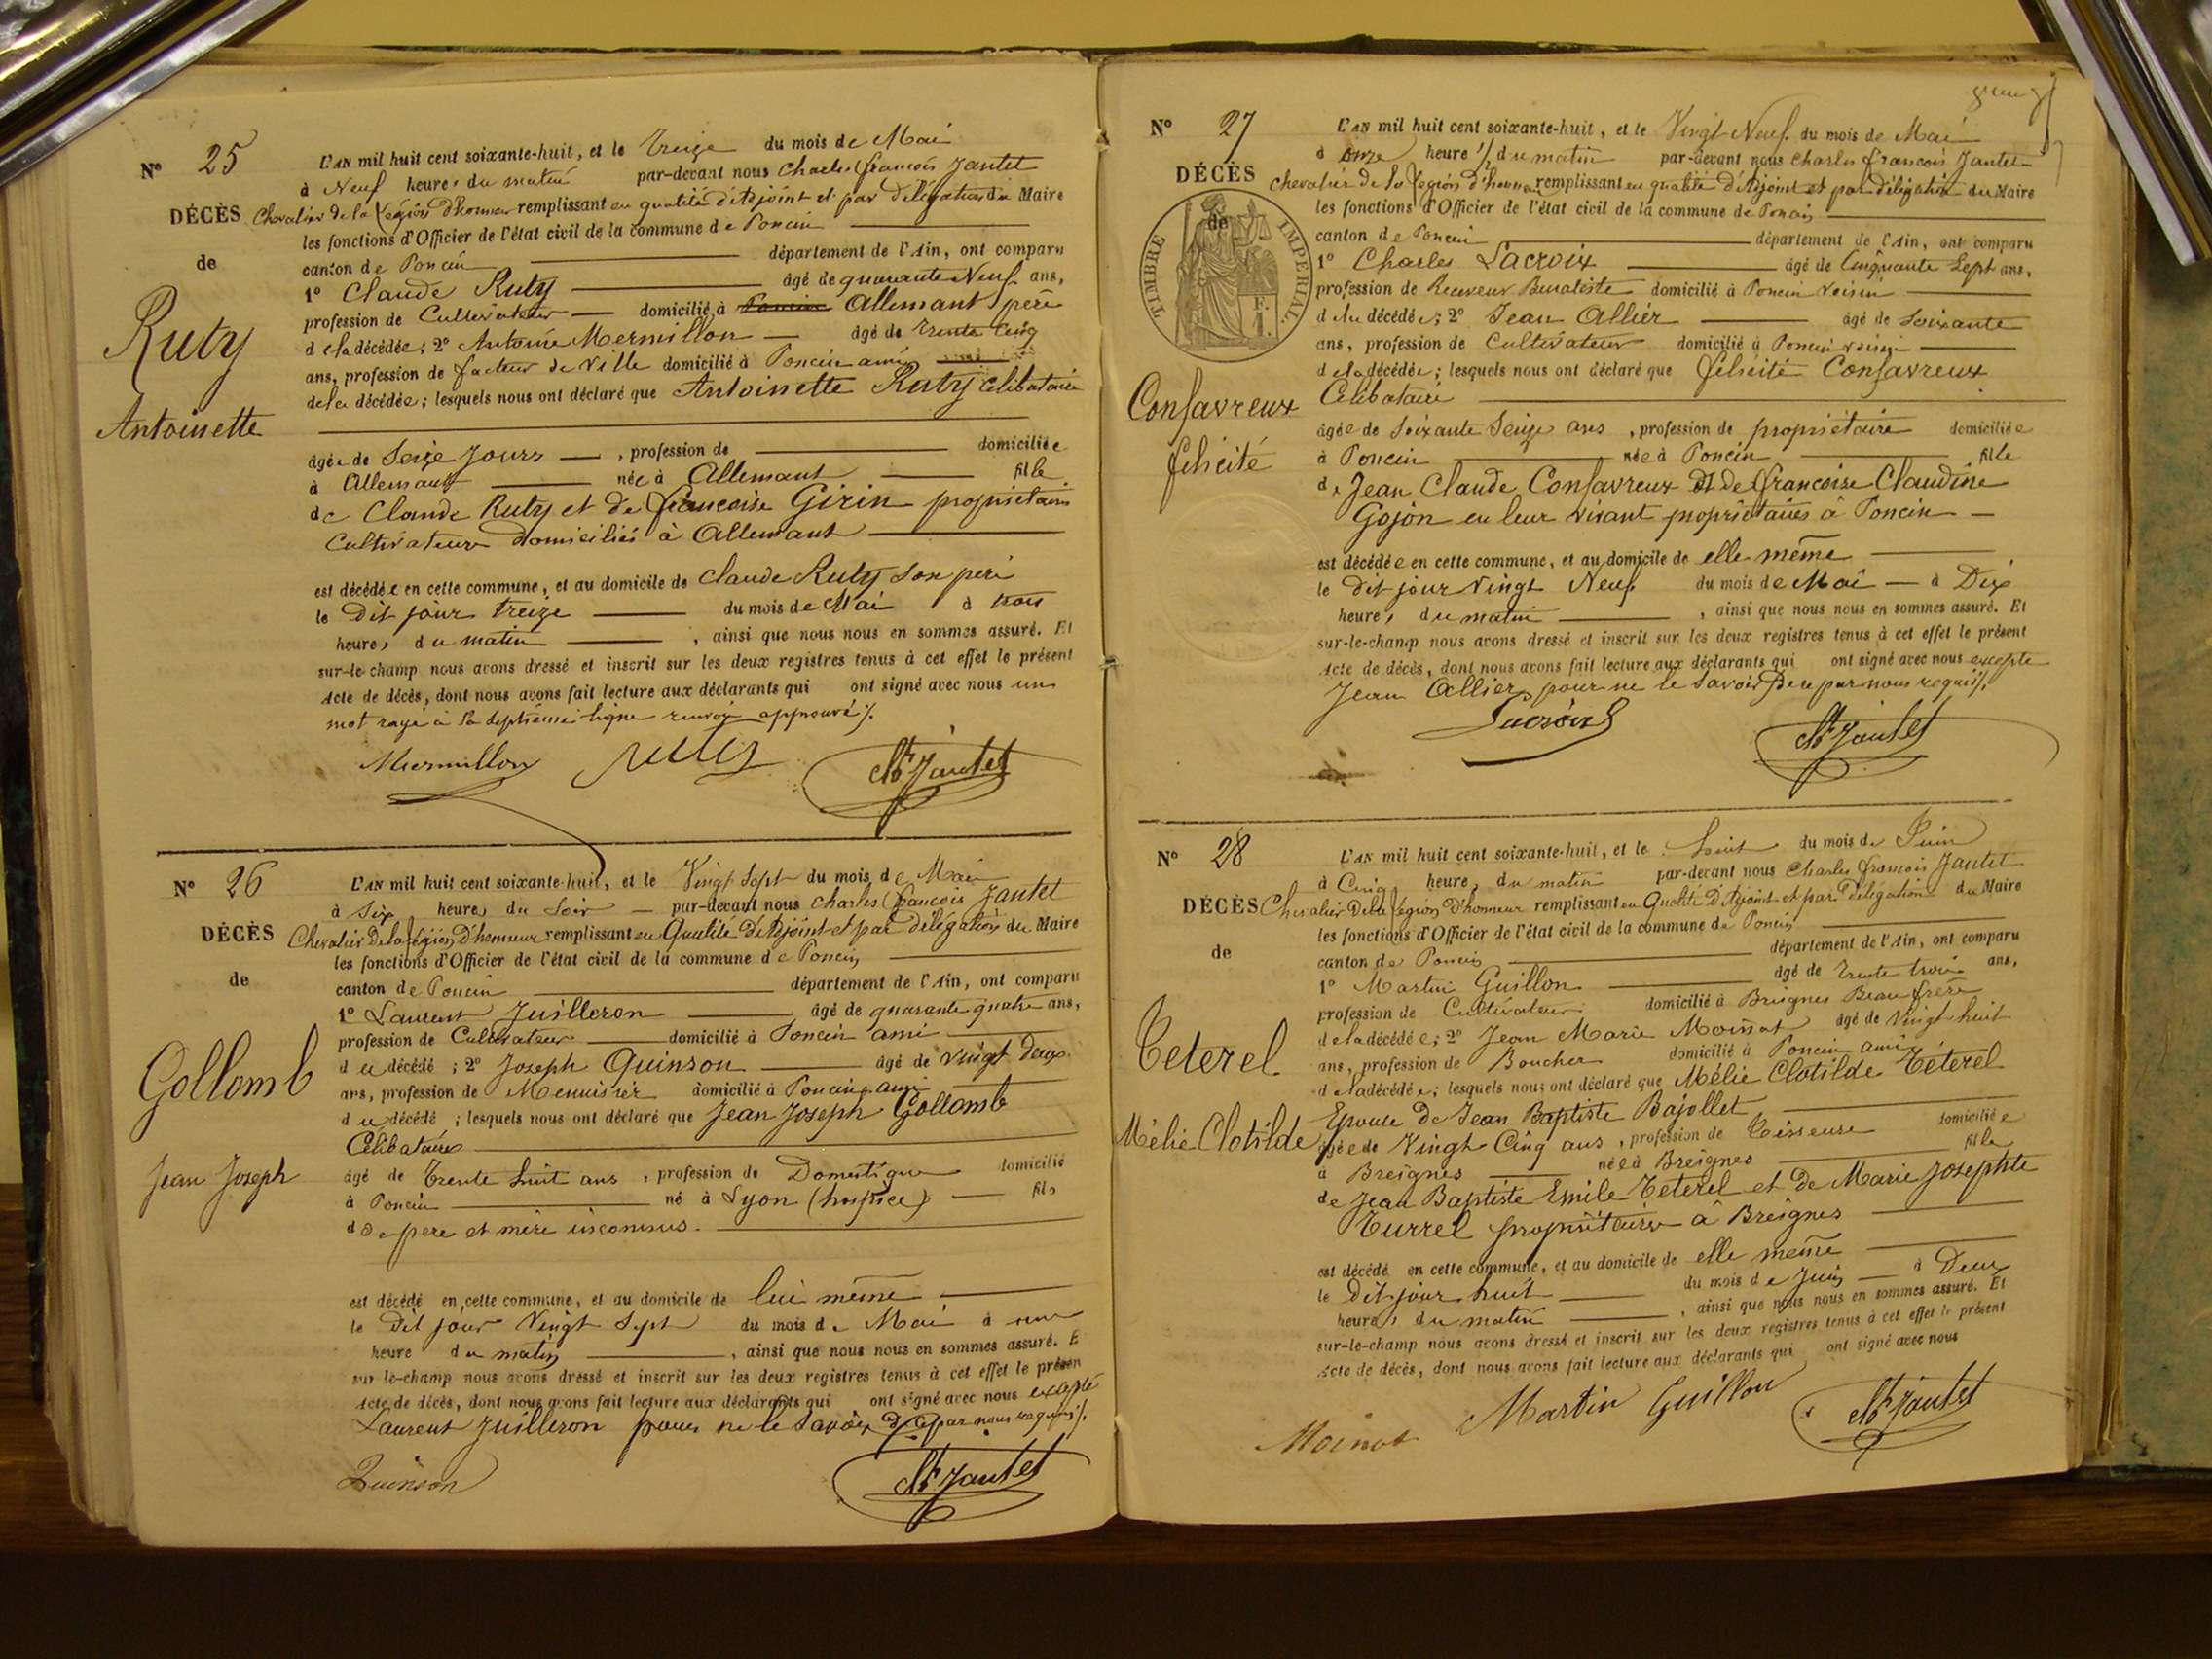 N° 25
DÉCÈS
de
Ruty
Antoinette
L'AN mil huit cent soixante-huit, et le treize du mois de Mai
à Neuf heures du matin par-devant nous Charles françois Jantet
Chevalier de la Légion d'honneur remplissant en qualité d'Adjoint et par délégation du Maire
les fonctions d'Officier de l'état civil de la commune de Poncin
canton de Poncin département de l'Ain, ont comparu
1° Claude Ruty âgé de quarante Neuf ans,
profession de Cultivateur domicilié à Poncin Allemant père
d ela décédée; 2° Antoine Mermillon âgé de trente Cinq
ans, profession de facteur de Ville domicilié à Poncin ami
dela décédée; lesquels nous ont déclaré que Antoinette Ruty Célibataire
âgée de Seize Jours , profession de domiciliée
à Allemant née à Allemant fille
de Claude Ruty et de françoise Girin propriétaires
Cultivateurs domiciliés à Allemant
est décédée en cette commune, et au domicile de Claude Ruty Son père
le Dit jour treize du mois de Mai à trois
heures du matin , ainsi que nous nous en sommes assuré. Et
sur-le-champ nous avons dressé et inscrit sur les deux registres tenus à cet effet le présent
Acte de décès, dont nous avons fait lecture aux déclarants qui ont signé avec nous un
mot rayé à la septième ligne renvoi approuvé ./.
Mermillon Ruty Ch Jantet
N° 26
DÉCÈS
de
Gollomb
Jean Joseph
L'AN mil huit cent soixante-huit, et le Vingt Sept du mois de Mai
à Six heures du Soir par-devant nous Charles françois Jantet
Chevalier De la Légion D'honneur remplissant en Qualité d'Adjoint et par délégation du Maire
les fonctions d'Officier de l'état civil de la commune de Poncin
canton de Poncin département de l'Ain, ont comparu
1° Laurent Juilleron âgé de quarante quatre ans,
profession de Cultivateur domicilié à Poncin ami
d u décédé ; 2° Joseph Quinson âgé de Vingt Deux
ans, profession de Menuisier domicilié à Poncin ami
d u décédé ; lesquels nous ont déclaré que Jean Joseph Gollomb
Célibataire
âgé de Trente huit ans , profession de Domestique domicilié
à Poncin né à Lyon (hospice) fils
d De père et mère inconnus.
est décédé en cette commune, et au domicile de lui même
le Dit jour Vingt Sept du mois de Mai à une
heure du matin , ainsi que nous nous en sommes assuré. E
sur le-champ nous avons dressé et inscrit sur les deux registres tenus à cet effet le présen
Acte de décès, dont nous avons fait lecture aux déclarants qui ont signé avec nous excepté
Laurent Juilleron pour ne le Savoir De ce par nous requis ./.
Quinson Ch Jantet
N° 27
DÉCÈS
de
TIMBRE IMPÉRIAL
Confavreux
félicité
L'AN mil huit cent soixante-huit, et le Vingt Neuf du mois de Mai
à onze heures du matin par-devant nous Charles françois Jantet
Chevalier de la Légion d'honneur remplissant en qualité d'Adjoint et par délégation du Maire
les fonctions d'Officier de l'état civil de la commune de Poncin
canton de Poncin département de l'Ain, ont comparu
1° Charles Lacroix âgé de Cinquante Sept ans,
profession de Receveur Buraliste domicilié à Poncin voisin
d ela décédée; 2° Jean Allier âgé de Soixante
ans, profession de Cultivateur domicilié à Poncin voisin
d ela décédée; lesquels nous ont déclaré que félicité Confavreux
Célibataire
âgée de Soixante Seize ans , profession de propriétaire domiciliée
à Poncin née à Poncin fille
de Jean Claude Confavreux Et de françoise Claudine
Gojon en leur vivant propriétaires à Poncin
est décédée en cette commune, et au domicile de elle même
le Dit jour Vingt Neuf du mois de Mai à Dix
heures du matin , ainsi que nous nous en sommes assuré. Et
sur-le-champ nous avons dressé et inscrit sur les deux registres tenus à cet effet le présent
Acte de décès, dont nous avons fait lecture aux déclarants qui ont signé avec nous excepté
Jean Allier pour ne le Savoir De ce par nous requis ./.
Lacroix Ch Jantet
N° 28
DÉCÈS
de
Teterel
Mélie Clotilde
L'AN mil huit cent soixante-huit, et le huit du mois de Juin
à Cinq heures du matin par-devant nous Charles françois Jantet
Chevalier De la Légion D'honneur remplissant en Qualité D'Adjoint et par Délégation du Maire
les fonctions d'Officier de l'état civil de la commune de Poncin
canton de Poncin département de l'Ain, ont comparu
1° Martin Guillon âgé de Trente trois ans,
profession de Cultivateur domicilié à Breignes Beau frère
d ela décédée; 2° Jean Marie Moinat âgé de Vingt huit
ans, profession de Boucher domicilié à Poncin ami
d ela décédée; lesquels nous ont déclaré que Mélie Clotilde Téterel
Epouse de Jean Baptiste Bajollet
âgée de Vingt Cinq ans , profession de Tisseuse domiciliée
à Breignes née à Breignes fille
de Jean Baptiste Emile Teterel et de Marie Josephte
Turrel propriétaires à Breignes
est décédé en cette commune, et au domicile de elle même
le Dit jour huit du mois de Juin à Deux
heures du matin , ainsi que nous nous en sommes assuré. Et
sur-le-champ nous avons dressé et inscrit sur les deux registres tenus à cet effet le présent
Acte de décès, dont nous avons fait lecture aux déclarants qui ont signé avec nous
Moinat Martin Guillon Ch Jantet